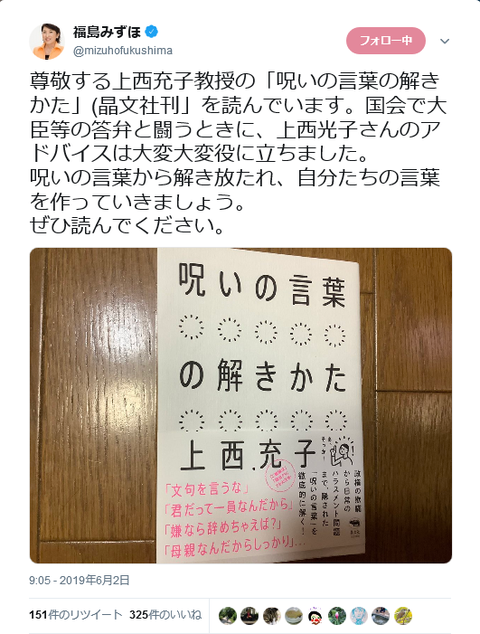 福島みずほ
@mizuhofukushima
フォロー中
尊敬する上西充子教授の「呪いの言葉の解き
かた」(晶文社刊」を読んでいます。国会で大
臣等の答弁と闘うときに、上西光子さんのア
ドバイスは大変大変役に立ちました。
呪いの言葉から解き放たれ、自分たちの言葉
を作っていきましょう。
ぜひ読んでください。
呪いの言葉
の解きかた
上西充子
政権の欺瞞
から日常の
ハラスメント問題
まで、隠された
「呪いの言葉」を
徹底的に解く!
「文句を言うな」
「君だって一員なんだから」
「嫌なら辞めちゃえば?」
「母親なんだからしっかり」…
9:05 - 2019年6月2日
151件のリツイート 325件のいいね